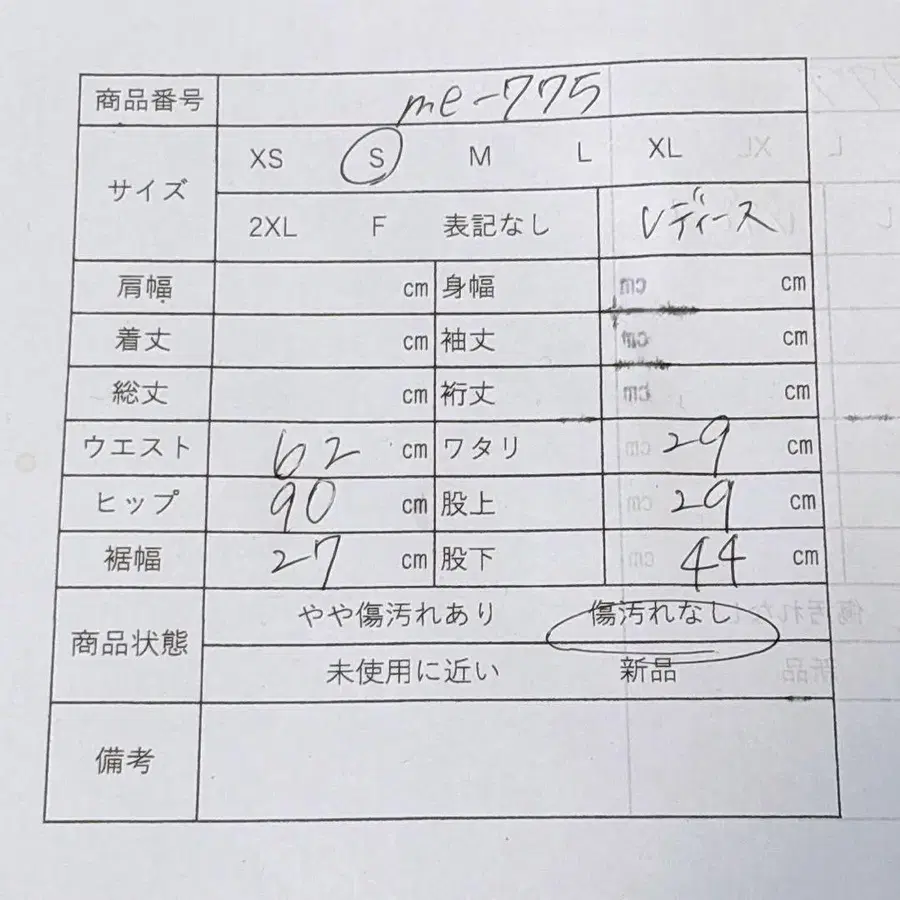 商品番号 me-775
サイズ XS S M L XL
2XL F 表記なし レディース
肩幅 cm 身幅 cm
着丈 cm 袖丈 cm
総丈 cm 裄丈 cm
ウエスト 62 cm ワタリ 29 cm
ヒップ 90 cm 股上 29 cm
裾幅 27 cm 股下 44 cm
商品状態 やや傷汚れあり 傷汚れなし
未使用に近い 新品
備考